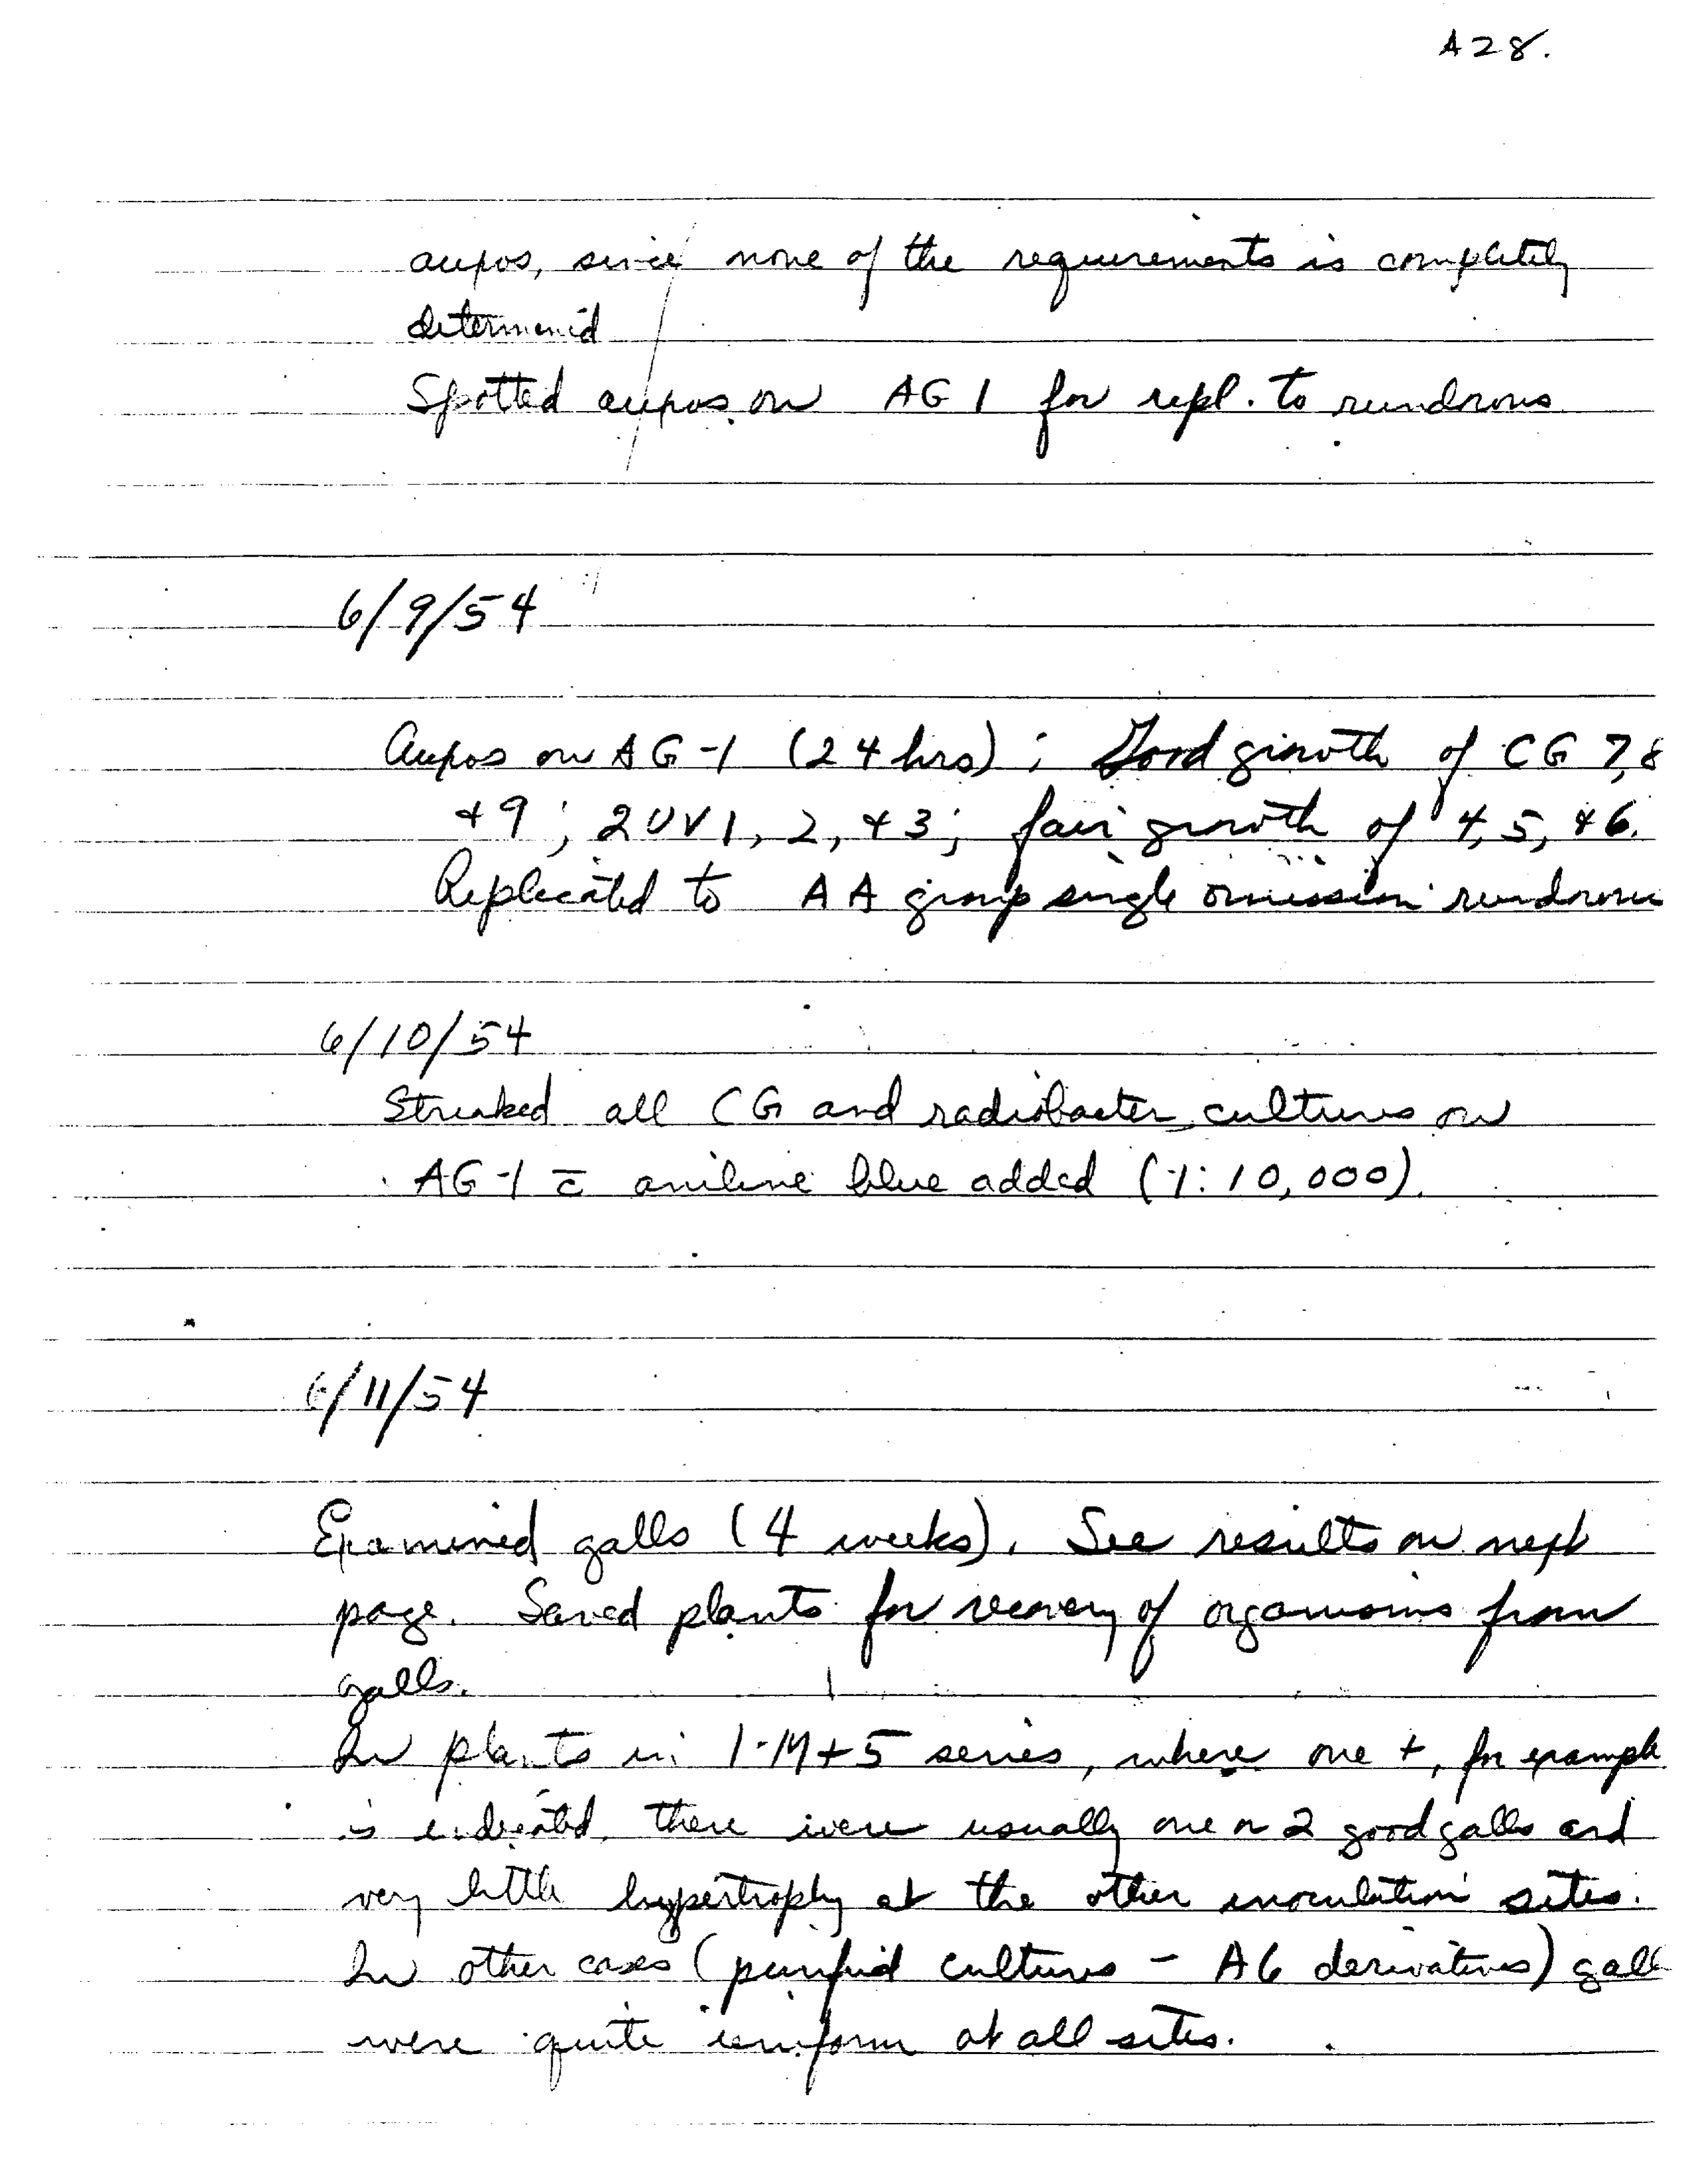 A28.
auxos, since none of the requirements is completely
determined
Spotted auxos on AG 1 for repl. to
6/9/54
Auxos on AG-1 (24 hrs); Good growth of CG 7,8
+9; 2UV1, 2, +3; fair growth of 4, 5, +6.
Replicated to AA group single omission
6/10/54
Streaked all CG and radiobacter cultures on
AG-1 c̄ aniline blue added (1:10,000).
6/11/54
Examined galls (4 weeks). See results on next
page. Saved plants for recovery of organisms from
galls.
In plants in 1-M+5 series, where one +, for example
is indicated, there were usually one or 2 good galls and
very little hypertrophy at the other inoculation sites.
In other cases (purified cultures - A6 derivatives) gall
were quite uniform at all sites.